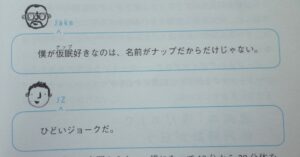 Jake
ナップ
僕が仮眠好きなのは、名前がナップだからだけじゃない。
JZ
ひどいジョークだ。